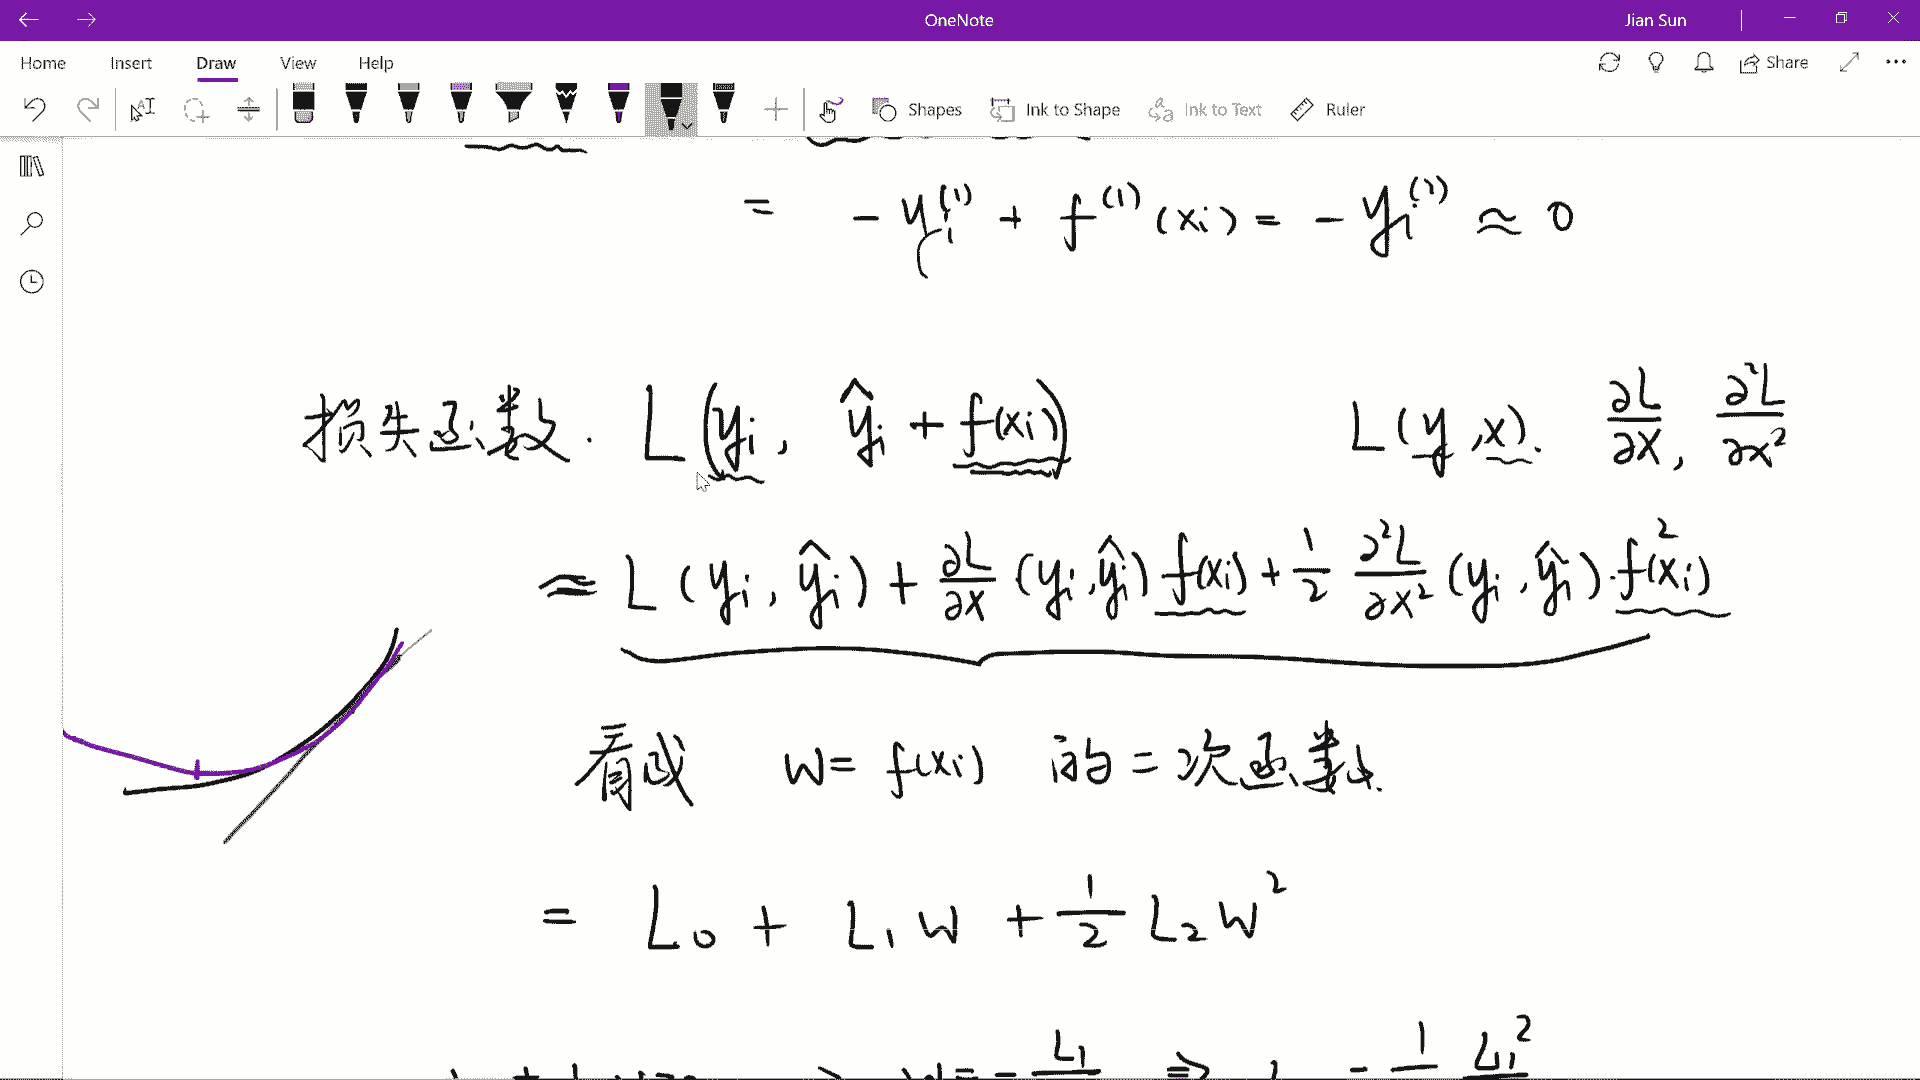 OneNote
Jian Sun
Home Insert Draw View Help
Share
Shapes Ink to Shape Ink to Text Ruler
= - y_i^(1) + f^(1)(x_i) = - y_i^(1) ≈ 0
损失函数. L(y_i, ŷ_i + f(x_i)) L(y, x). ∂L/∂x, ∂²L/∂x²
≈ L(y_i, ŷ_i) + ∂L/∂x (y_i, ŷ_i) f(x_i) + 1/2 ∂²L/∂x² (y_i, ŷ_i)·f²(x_i)
看成 w = f(x_i) 的二次函数.
= L_0 + L_1 w + 1/2 L_2 w²